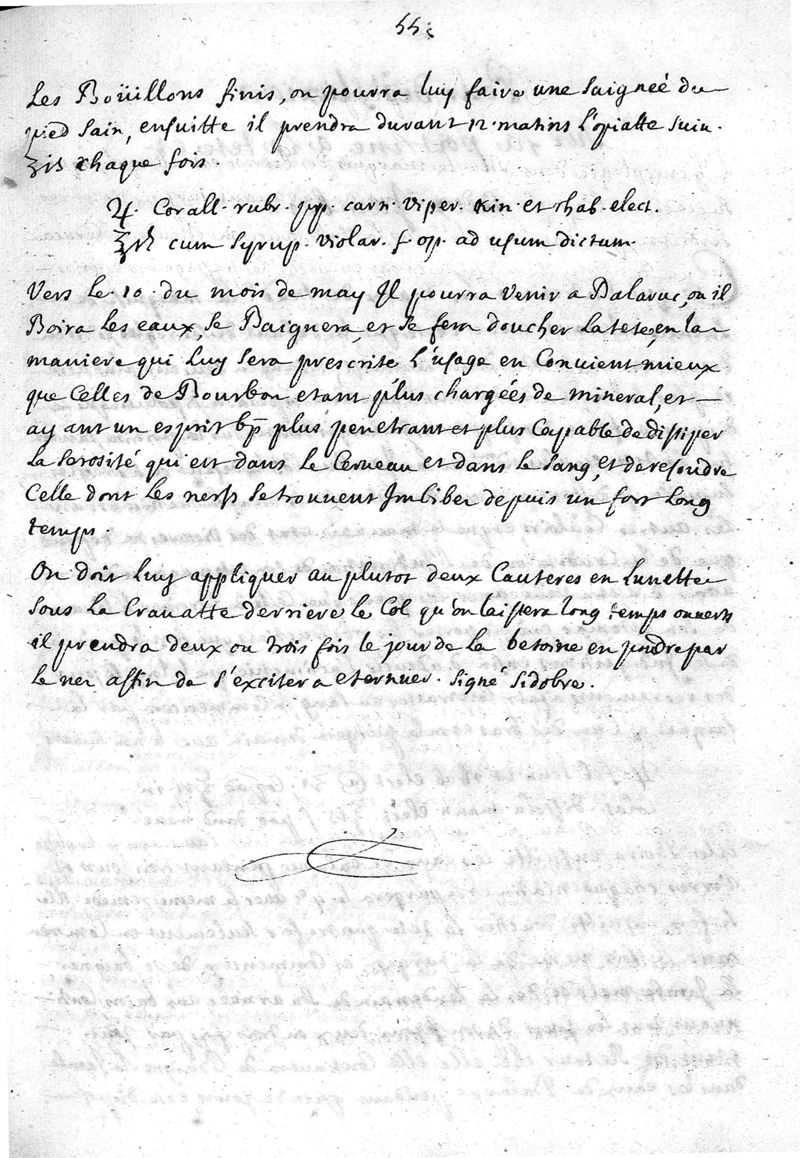 55
Les Boüillons finis, on pourra luy faire une saigneé du
pied sain, ensuitte il prendra durant 12. matins l'opiatte suiv.
ʒiß chaque fois.
♃. Corall. rubr. pp. carn. viper. Kin. et rhab. elect.
cum syrup. violar. f. op. ad usum dictum.
Vers le 10 du mois de may Il pourra venir a Balaruc, ou il
Boira les eaux, se Baignera, et se fera doucher la tete, en la
maniere qui Luy sera prescrite l'usage en Convient mieux
que Celles de Bourbon etant plus chargées de mineral, et
ayant un esprit bp plus penetrant et plus Capable de dissiper
la serosité qui est dans le Cerveau et dans le sang, et de resoudre
Celle dont les nerfs se trouvent Imbiber depuis un fort long
temps.
On doit luy appliquer au plutot deux Cauteres en Lunette
sous la Cravatte derriere le Col qu'on laissera long temps ouverts
il prendra deux ou trois fois le jour de la betoine en poudre par
le nez affin de s'exciter a eternuer. signé sidobre.